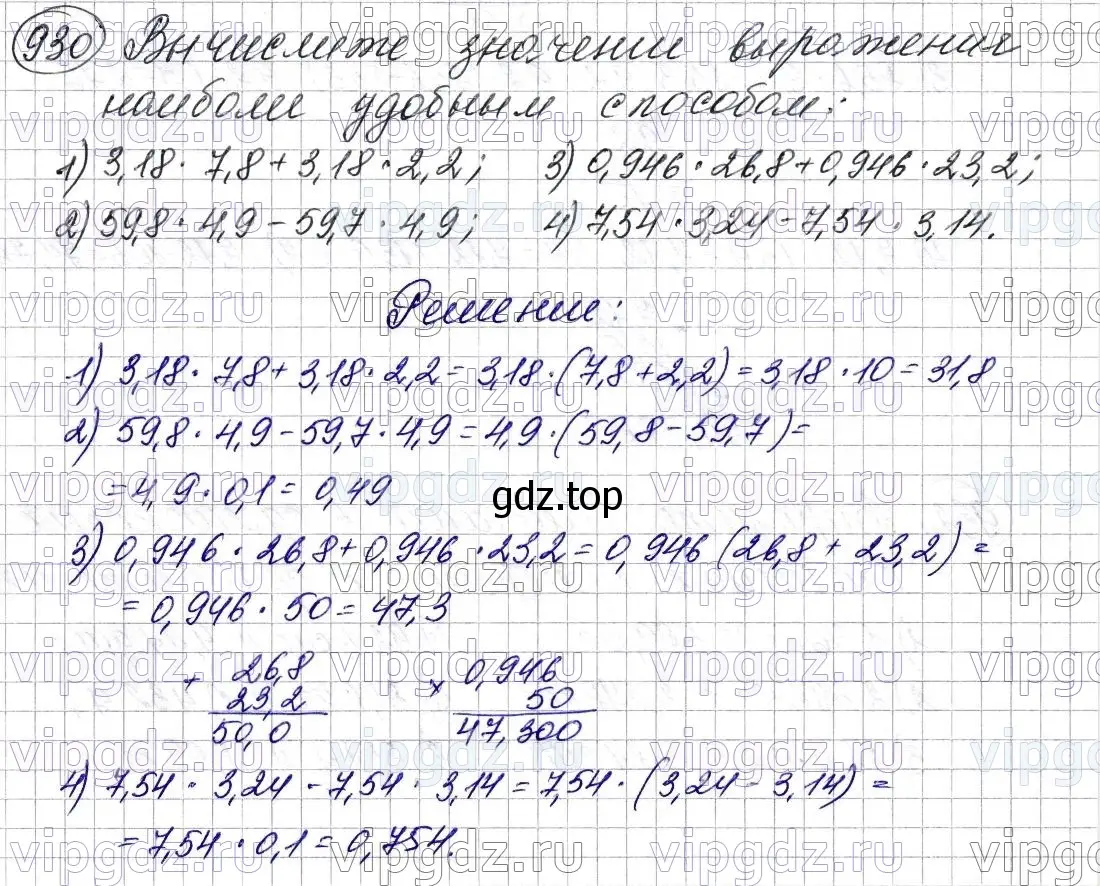 930 Вычислите значении выражения
наиболи удобным способом:
1) 3,18 · 7,8 + 3,18 · 2,2; 3) 0,946 · 26,8 + 0,946 · 23,2;
2) 59,8 · 4,9 - 59,7 · 4,9; 4) 7,54 · 3,24 - 7,54 · 3,14.
Решении:
1) 3,18 · 7,8 + 3,18 · 2,2 = 3,18 · (7,8 + 2,2) = 3,18 · 10 = 31,8
2) 59,8 · 4,9 - 59,7 · 4,9 = 4,9 · (59,8 - 59,7) =
= 4,9 · 0,1 = 0,49
gdz.top
3) 0,946 · 26,8 + 0,946 · 23,2 = 0,946 (26,8 + 23,2) =
= 0,946 · 50 = 47,3
+ 26,8 × 0,946
23,2 50
50,0 47,300
4) 7,54 · 3,24 - 7,54 · 3,14 = 7,54 · (3,24 - 3,14) =
= 7,54 · 0,1 = 0,754.
vipgdz.ru